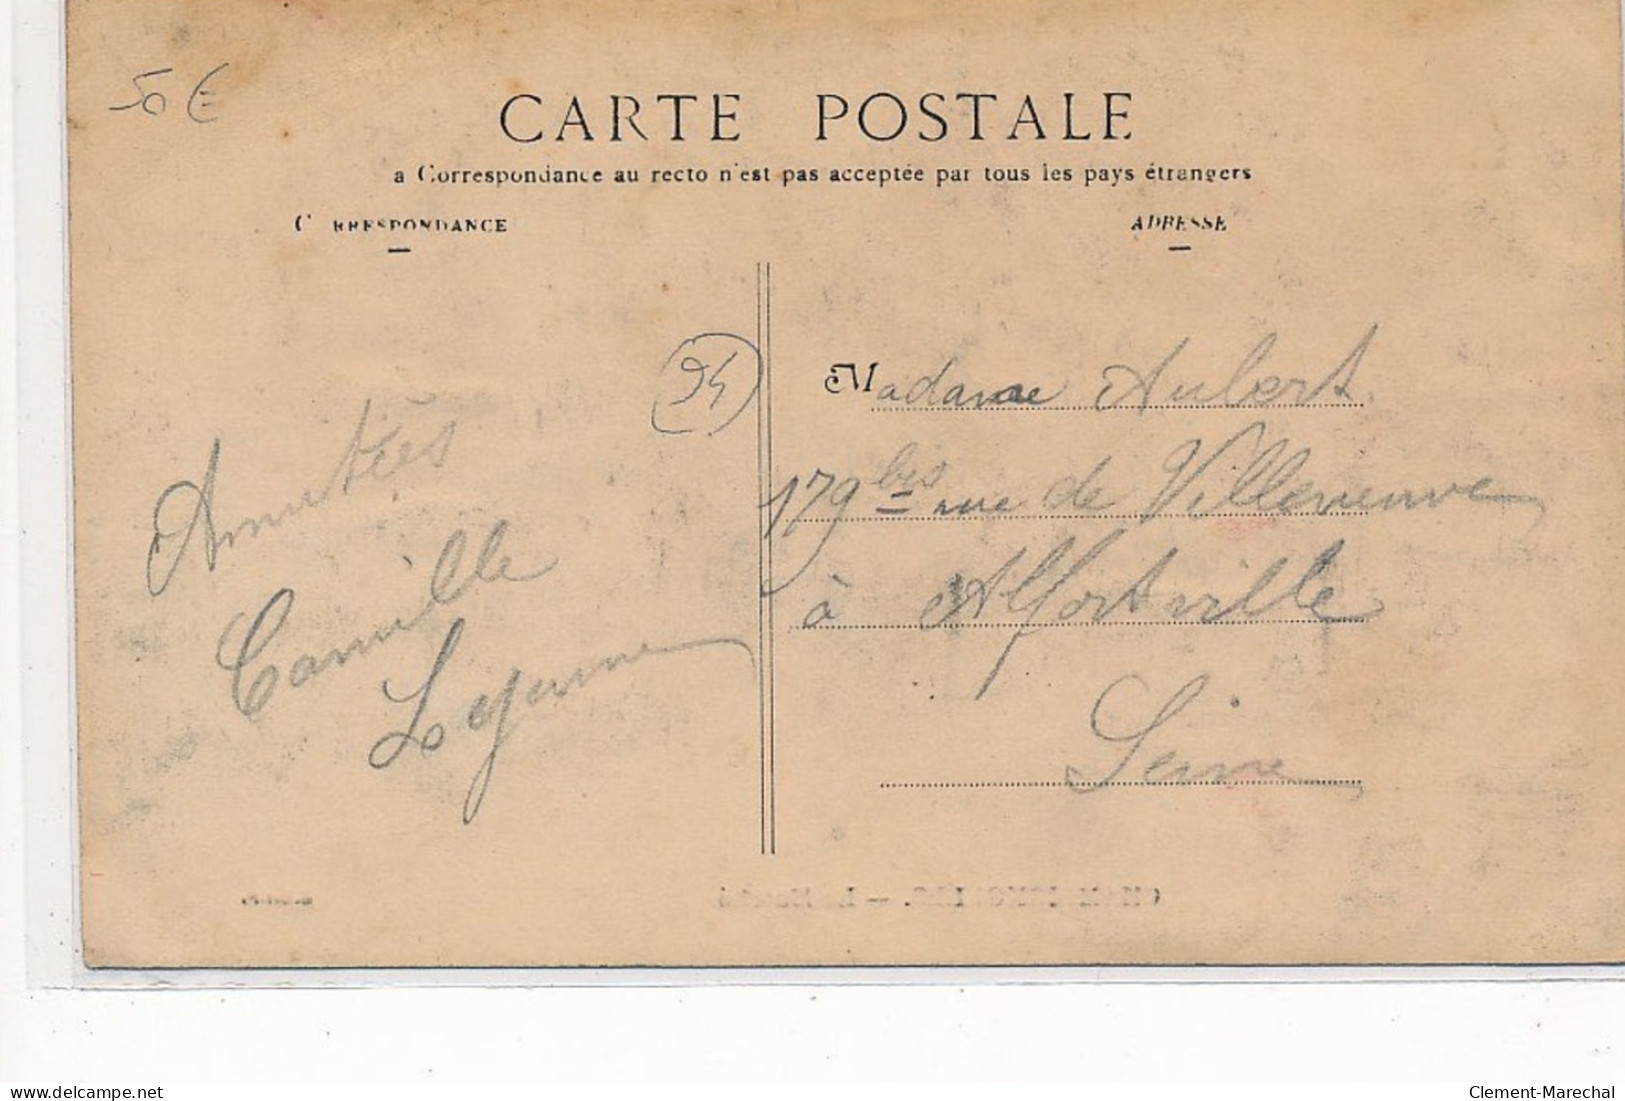 50 €
CARTE POSTALE
a Correspondance au recto n'est pas acceptée par tous les pays étrangers
C RRESPONDANCE
ADRESSE
94
Amitiés
Camille
Lejeune
Madame Aubert
179 bis rue de Villeneuve
à Alfortville
Seine
delcampe.net
Clement-Marechal